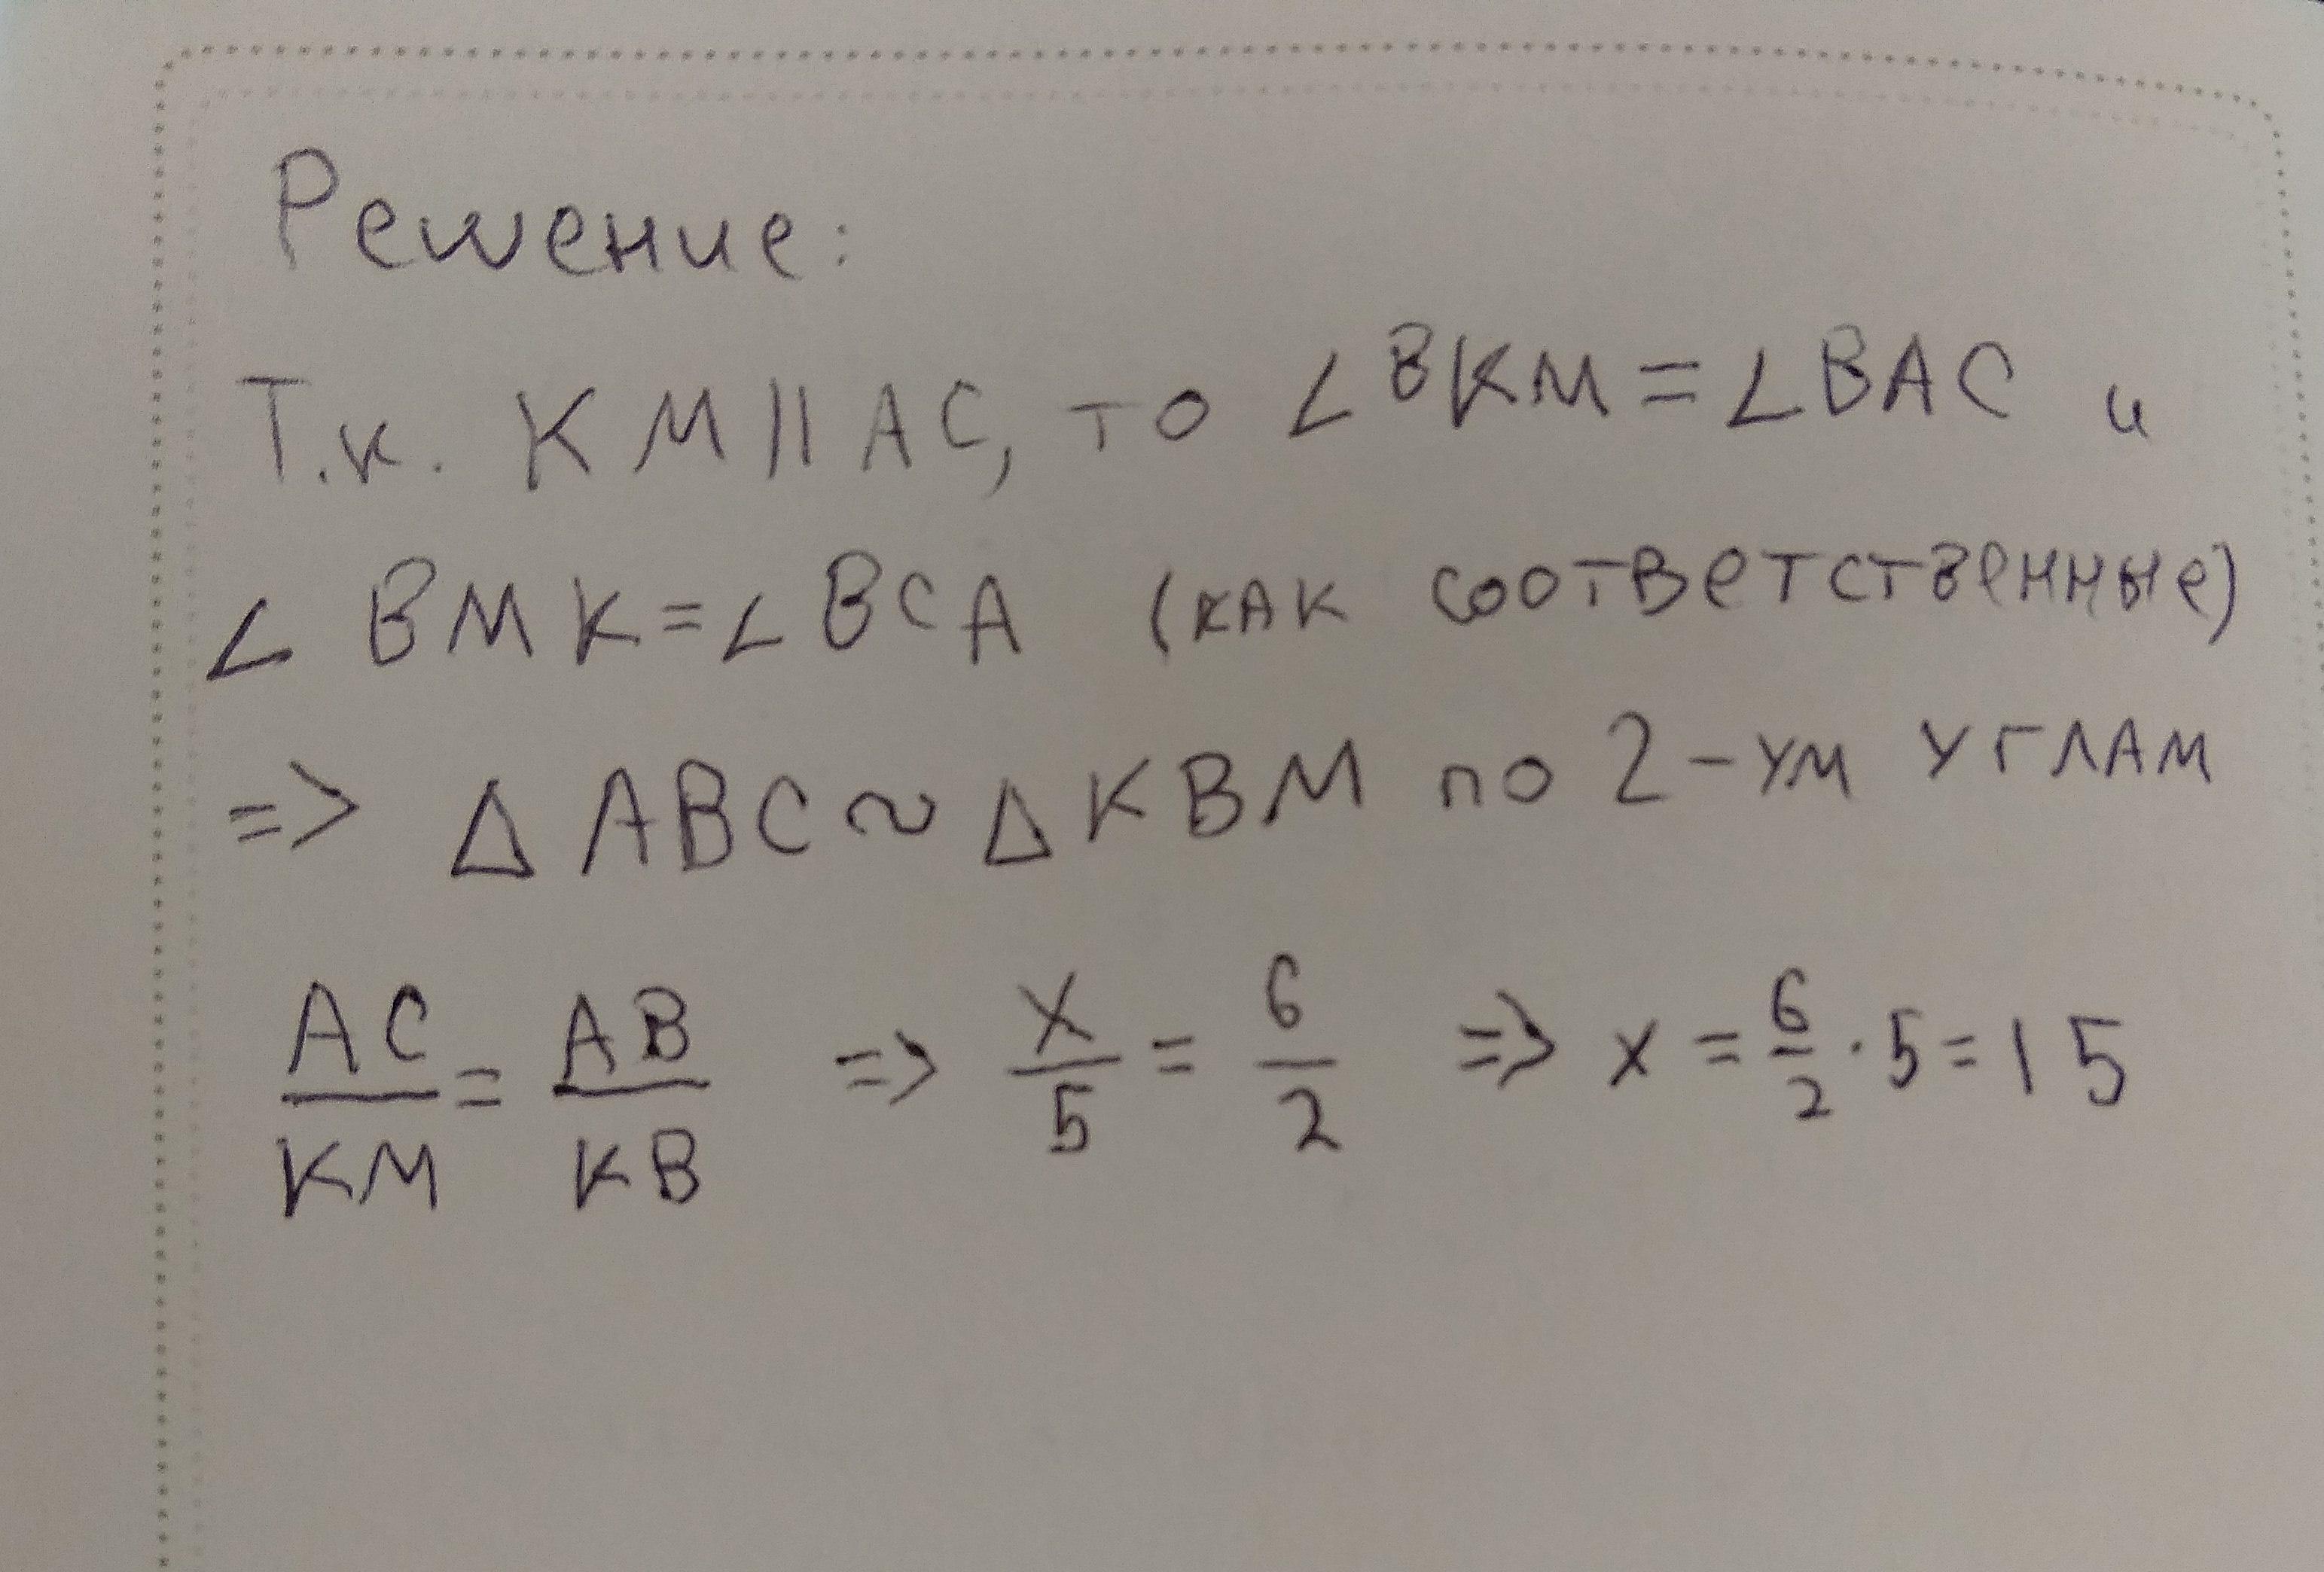 Решение:
Т.к. KM || AC, то ∠BKM = ∠BAC и
∠BMK = ∠BCA (как соответственные)
=> Δ ABC ~ Δ KBM по 2-ум углам
AC/KM = AB/KB => x/5 = 6/2 => x = 6/2 · 5 = 15